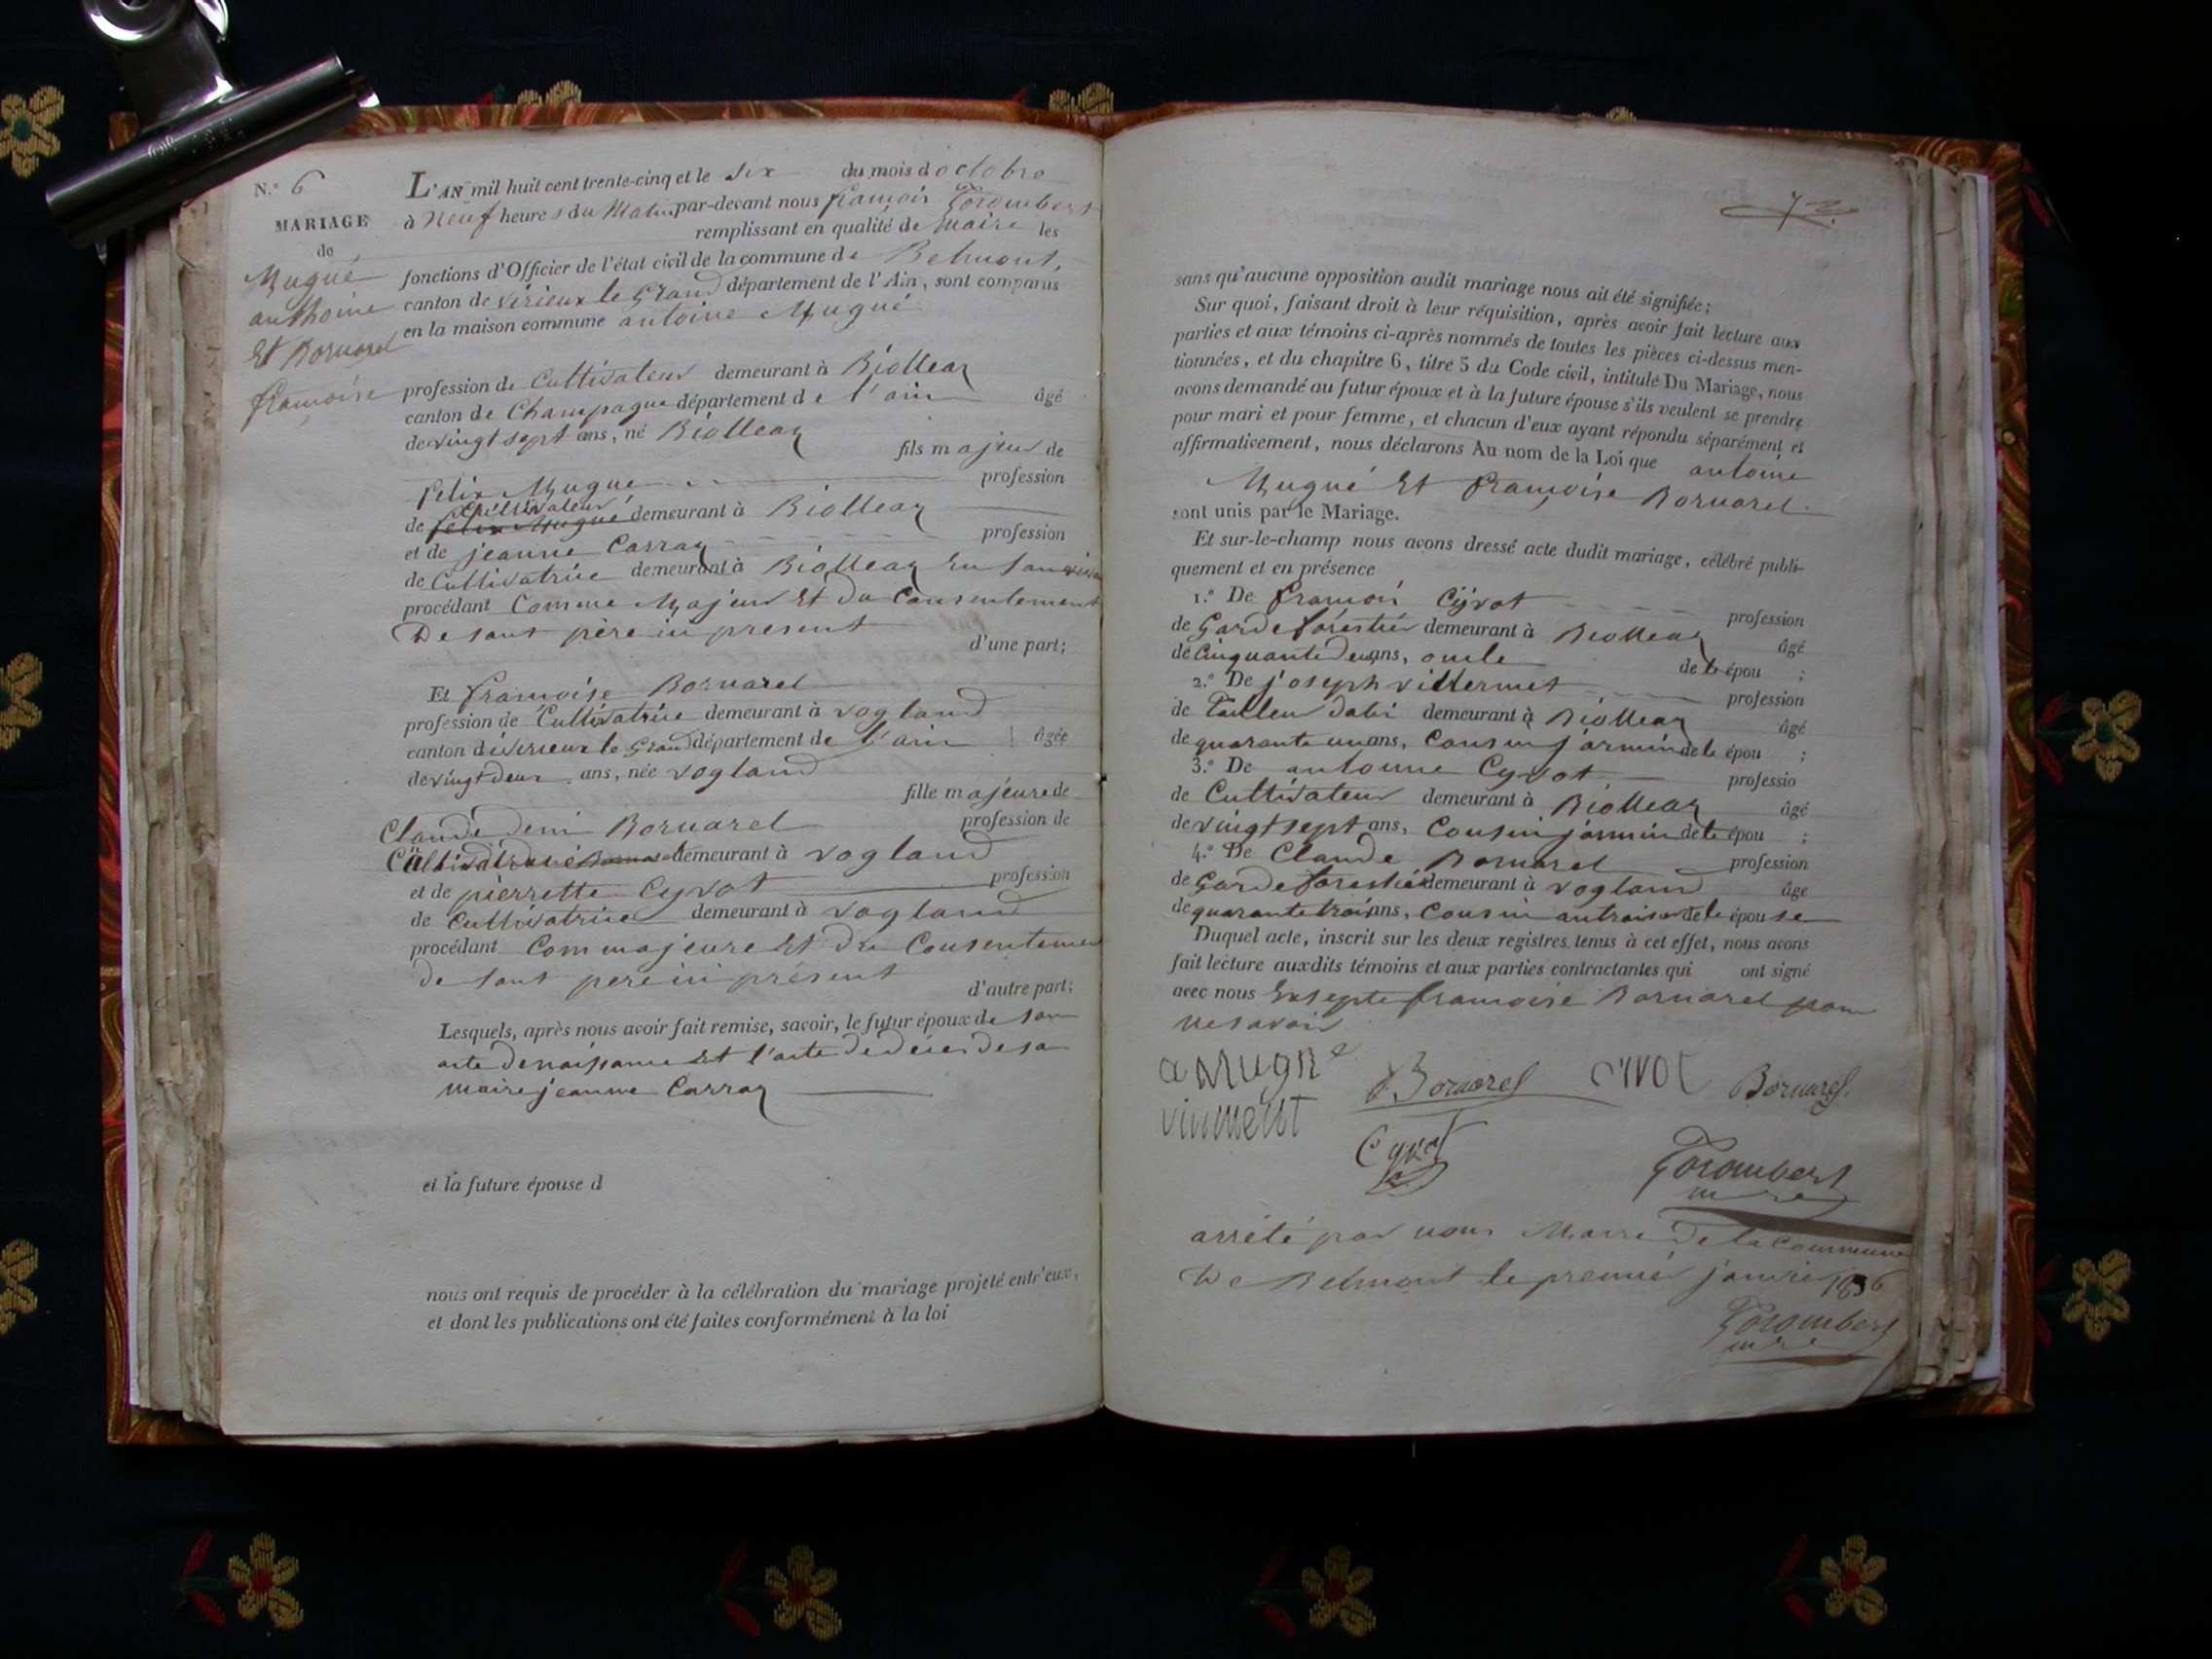 N.° 6
MARIAGE
de
Mugué
anthoine
Et Bornarel
françoise
L'AN mil huit cent trente-cinq et le six du mois d octobre
à Neuf heures du Matin par-devant nous françois Gorombert
remplissant en qualité de Maire les
fonctions d'Officier de l'état civil de la commune de Belmont,
canton de virieux le Grand département de l'Ain, sont comparus
en la maison commune antoine Mugué
profession de Cultivateur demeurant à Biolleaz
canton de Champagne département de l'ain âgé
de vingt sept ans, né Biolleaz
fils majeur de
felix Mugué profession
cultivateur
de felix Mugué demeurant à Biolleaz
et de jeanne Carraz profession
de Cultivatrice demeurant à Biolleaz
procédant Comme Majeur Et du Consentement
De sont père ici present
d'une part;
Et françoise Bornarel
profession de Cultivatrice demeurant à vogland
canton de virieux le Grand département de l'ain âgée
de vingt deux ans, née vogland
fille majeure de
Claude deni Bornarel profession de
demeurant à vogland
et de pierrette Cyvot profession
de Cultivatrice demeurant à vogland
procédant Com majeure Et du Consentement
de sont pere ici présent
d'autre part;
Lesquels, après nous avoir fait remise, savoir, le futur époux de son
acte de naissance Et l'acte de décès de sa
maire jeanne Carraz
et la future épouse d
nous ont requis de procéder à la célébration du mariage projeté entr'eux,
et dont les publications ont été faites conformément à la loi
72
sans qu'aucune opposition audit mariage nous ait été signifiée;
Sur quoi, faisant droit à leur réquisition, après avoir fait lecture aux
parties et aux témoins ci-après nommés de toutes les pièces ci-dessus men-
tionnées, et du chapitre 6, titre 5 du Code civil, intitulé Du Mariage, nous
avons demandé au futur époux et à la future épouse s'ils veulent se prendre
pour mari et pour femme, et chacun d'eux ayant répondu séparément et
affirmativement, nous déclarons Au nom de la Loi que antoine
Mugué Et françoise Bornarel
sont unis par le Mariage.
Et sur-le-champ nous avons dressé acte dudit mariage, célébré publi-
quement et en présence
1.° De françois Cyvot profession
de Garde forestier demeurant à Biolleaz âgé
de cinquante deux ans, oncle de le épou ;
2.° De joseph villermet profession
de Tailleur dabi demeurant à Biolleaz âgé
de quarante un ans, Cousin jarmin de le épou ;
3.° De antoinne Cyvot professio
de Cultivateur demeurant à Biolleaz âgé
de vingt sept ans, Cousin jarmin de le épou ;
4.° De Claude Bornarel profession
de Garde forestié demeurant à vogland âge
de quarante trois ans, Cousin de le épouse
Duquel acte, inscrit sur les deux registres tenus à cet effet, nous avons
fait lecture auxdits témoins et aux parties contractantes qui ont signé
avec nous Exsepte françoise Bornarel pour
ne savoir
a Mugné Bornarel Civot Bornarel
Cyvot
Gorombert
mre
arrêté par nous Maire De la Commune
De Belmont le premier janvier 1836
Gorombert
mre